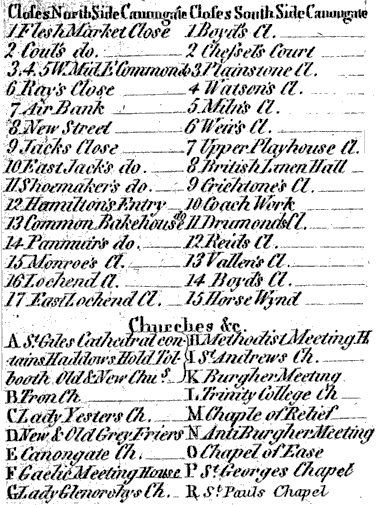 Closes North Side Canongate
1 Flesh Market Close
2 Coul's do.
3.4.5 W. Mid. E Commond
6 Ray's Close
7 Air Bank
8 New Street
9 Jacks Close
10 East Jack's do.
11 Shoemaker's do.
12 Hamilton's Entry
13 Common Bakehouse do
14 Panmuir's do.
15 Monroe's Cl.
16 Lochend Cl.
17 East Lochend Cl.
Closes South Side Canongate
1 Boyd's Cl.
2 Chessel's Court
3 Plainstone Cl.
4 Watson's Cl.
5 Miln's Cl.
6 Weir's Cl.
7 Upper Playhouse Cl.
8 British Linen Hall
9 Crichtone's Cl.
10 Coach Work
11 Drumonds Cl.
12 Reids Cl.
13 Vallen's Cl.
14 Boyd's Cl.
15 Horse Wynd
Churches &c.
A St. Giles Cathedral con
tains Haddows Hold Tol
booth Old & New Chus.
B Tron Ch.
C Lady Yesters Ch.
D New & Old Grey Friers
E Canongate Ch.
F Gaelic Meeting House
G Lady Glenorchys Ch.
H Methodist Meeting H
I St. Andrews Ch.
K Burgher Meeting
L Trinity College Ch
M Chaple of Relief
N Anti Burgher Meeting
O Chapel of Ease
P St. Georges Chapel
R St. Pauls Chapel